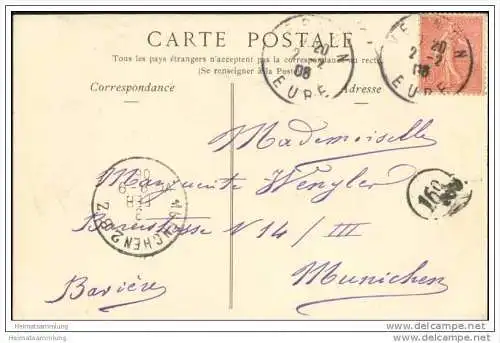 CARTE POSTALE
Tous les pays étrangers n'acceptent pas la correspondance au recto
(Se renseigner à la Poste)
Correspondance
Adresse
VERNON
2 20
2-2
08
EURE
VERNON
2 20
2-2
08
EURE
Mademoiselle
Marguerite Wengler
N 14 / III
Munichen
Bavière
MUENCHEN 2 B.Z.
FEB
08
160
Heimatsammlung
Heimatsammlung
www.delcampe.net